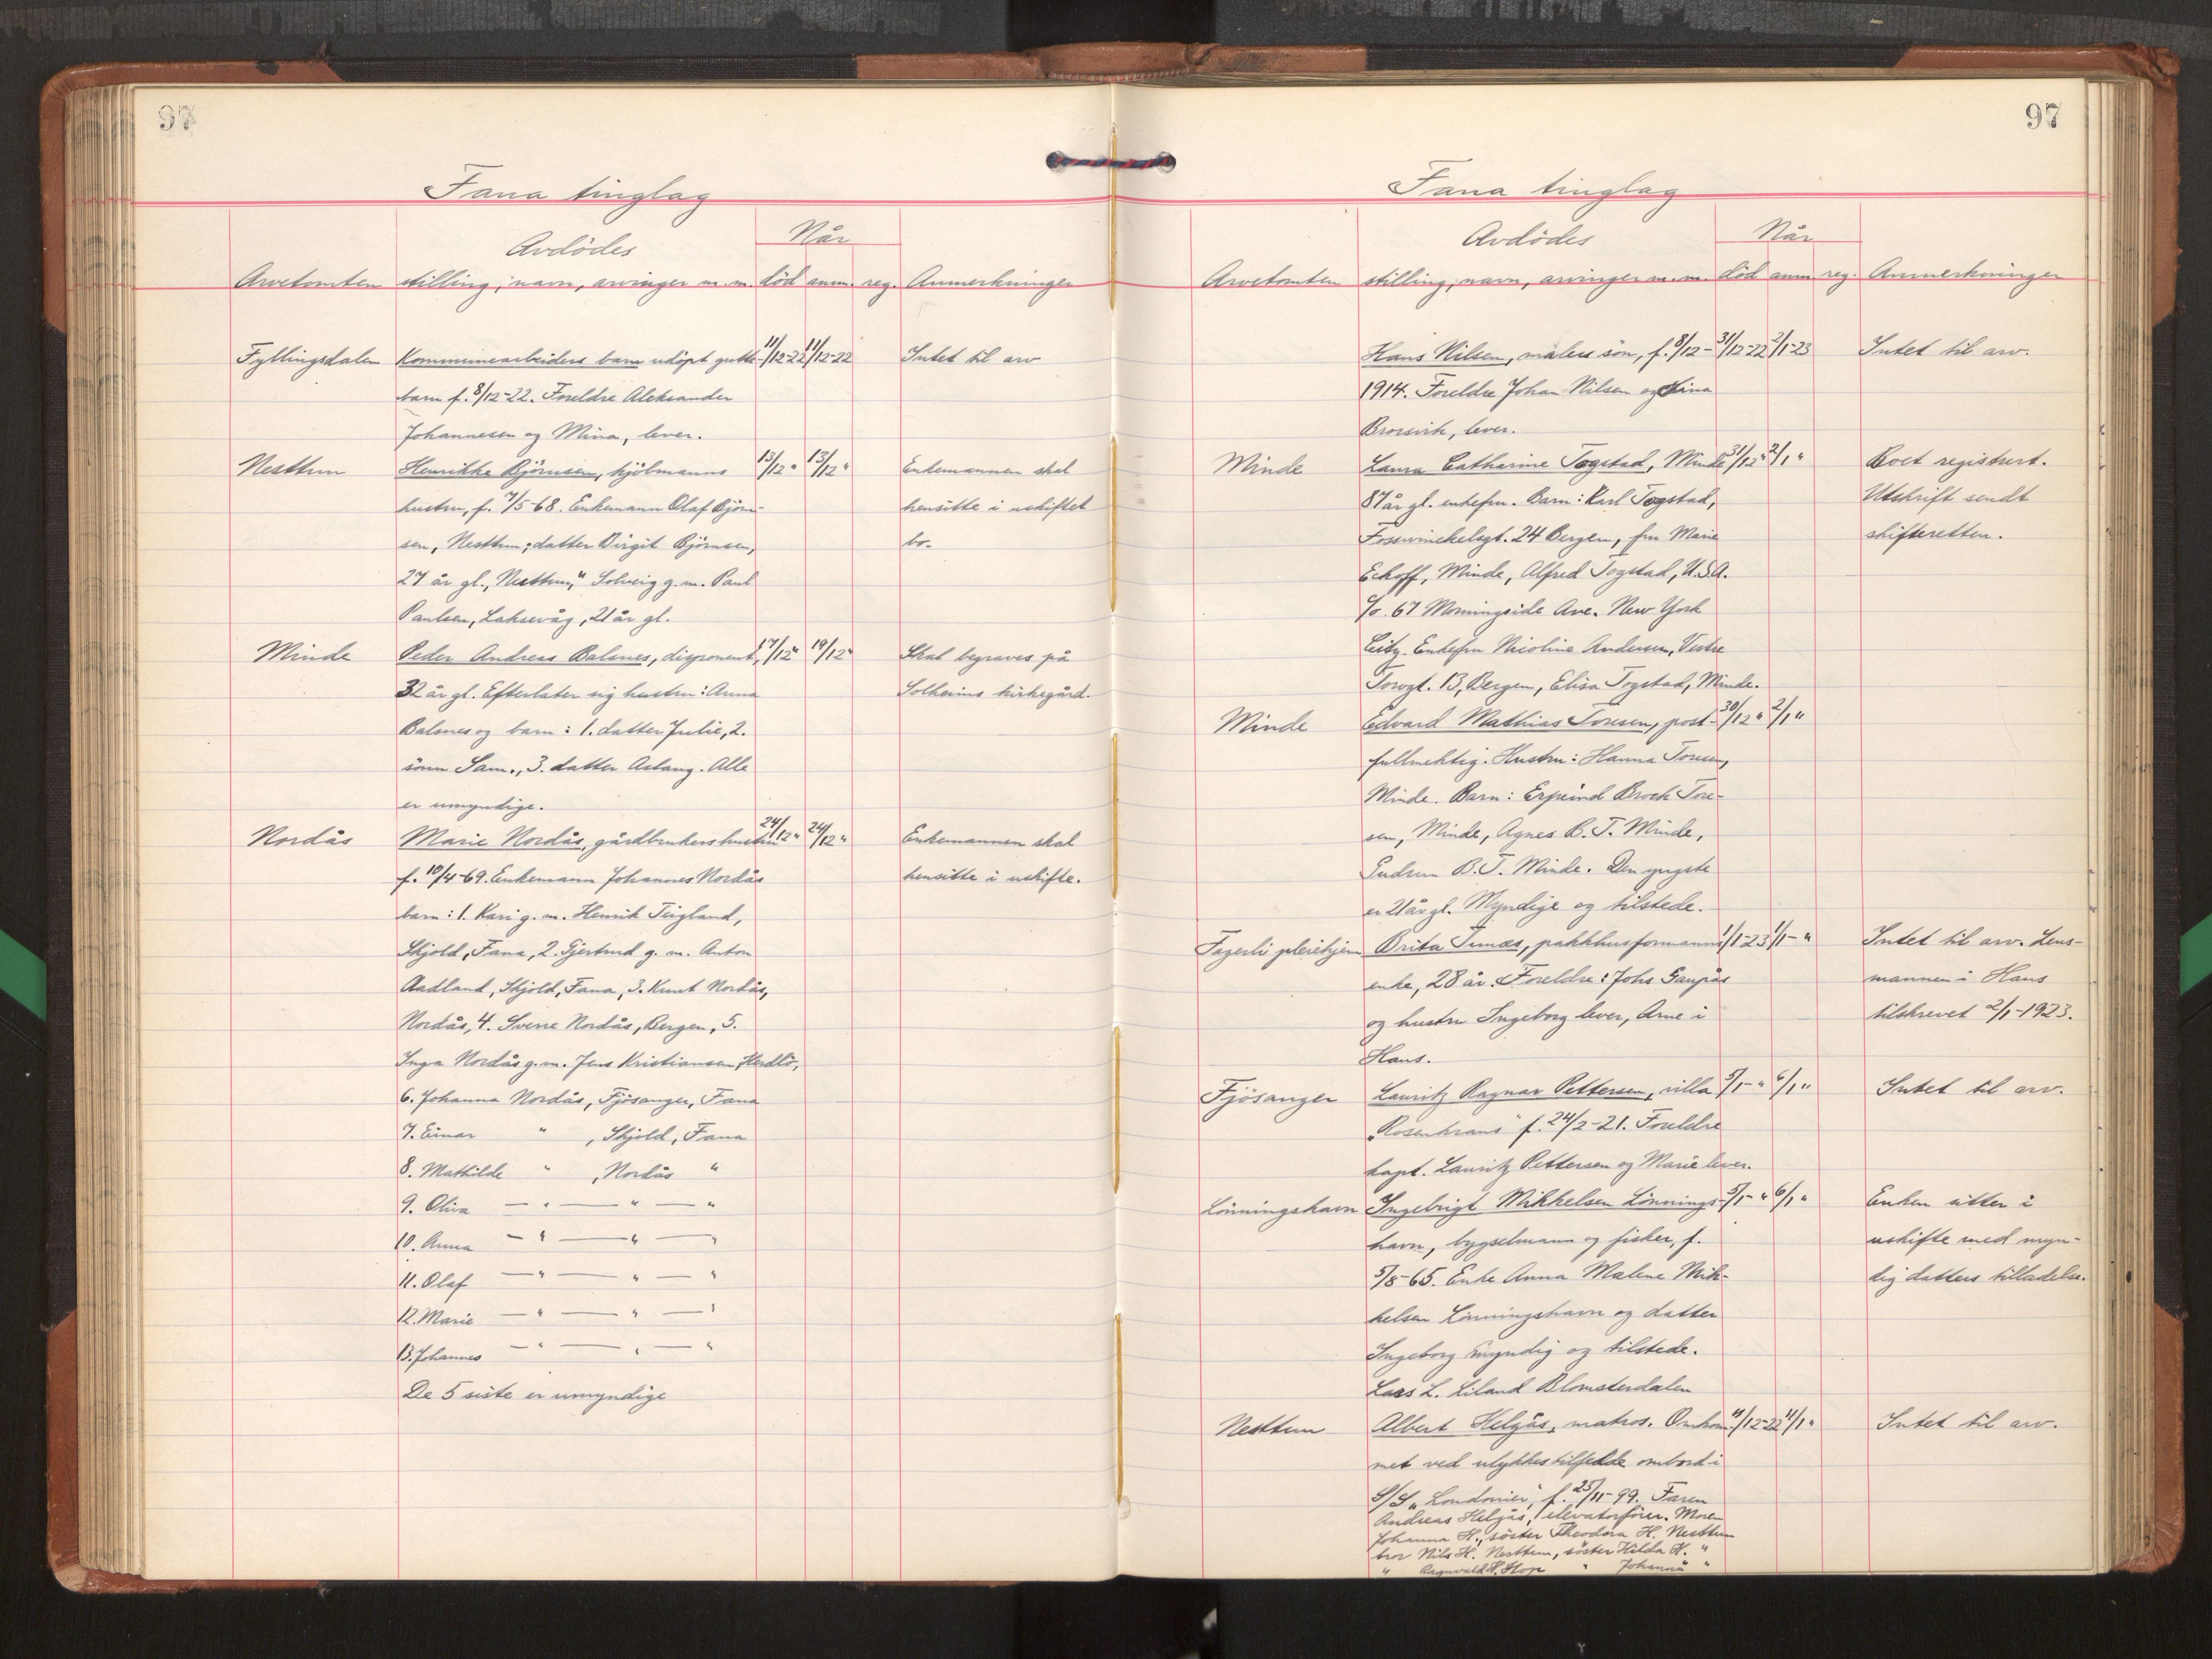 97
Fana tinglag
Når
Avdödes
Arvetomten stilling, navn, arvinger m. m. död anm. reg. Anmerkninger
Fyllingsdalen Kommunearbeiders barn udöpt gutte- 11/12-22 11/12-22 Intet til arv
barn f. 8/12-22. Foreldre Aleksander
Johannesen og Mina, lever.
Nesttun Henrikke Björnsen, kjölmanns 13/12 " 13/12 " Enkemannen skal
hustru, f. 7/5-68. Enkemann Olaf Björn- hensitte i uskiftet
sen, Nesttun; datter Birgit Björnsen, bo.
27 år gl., Nesttun, " Solveig g. m. Paul
Paulsen, Laksevåg, 21 år gl.
Minde Peder Andreas Balsnes, disponent, 17/12 " 19/12 " Skal begraves på
32 år gl. Efterlater sig hustru: Anna Solheims kirkegård.
Balsnes og barn: 1. datter Julie, 2.
sönn Sam., 3. datter Aslaug. Alle
er umyndige.
Nordås Marie Nordås, gårdbrukers hustru 24/12 " 24/12 " Enkemannen skal
f. 10/4-69. Enkemann Johannes Nordås hensitte i uskifte.
barn: 1. Kari g. m. Henrik Teigland,
Skjold, Fana, 2. Gjertrud g. m. Anton
Aadland, Skjold, Fana, 3. Knut Nordås,
Nordås, 4. Sverre Nordås, Bergen, 5.
Inga Nordås g. m. Jens Kristiansen, Herdlö,
6. Johanna Nordås, Fjösanger, Fana
7. Einar " , Skjold, Fana
8. Mathilde " , Nordås "
9. Oliva — " — " — "
10. Anna — " — " — "
11. Olaf — " — " — "
12. Marie — " — " — "
13. Johannes — " — " — "
De 5 siste er umyndige
97
Fana tinglag
Når
Avdödes
Arvetomten stilling, navn, arvinger m. m. död anm. reg. Anmerkninger
Hans Nilsen, malers sön, f. 8/12- 31/12-22 2/1-23 Intet til arv.
1914. Foreldre Johan Nilsen og Lina
Brosvik, lever.
Minde Laura Catharine Togstad, Minde 31/12 " 2/1 " Boet registrert.
87 år gl. enkefru. Barn: Karl Togstad, Utskrift sendt
Fosswinckelsgt. 24 Bergen, fru Marie skifteretten.
Eckoff, Minde, Alfred Togstad, U.S.A.
c/o. 67 Morningside Ave. New York
City. Enkefru Nicoline Andersen, Vestre
Torvgt. 13, Bergen, Elisa Togstad, Minde.
Minde Edvard Mathias Toresen, post- 30/12 " 2/1 "
fullmektig. Hustru: Hanna Toresen,
Minde. Barn: Erpeind Brock Tore-
sen, Minde, Agnes B. T. Minde,
Gudrun B. T. Minde. Den yngste
er 21 år gl. Myndige og tilstede.
Fagerli pleiehjem Brita Tunæs, pakkhusformanns 1/1-23 1/1- " Intet til arv. Lens-
enke, 28 år. Foreldre: Johs Gaupås mannen i Haus
og hustru Ingeborg lever, Arne i tilskrevet 2/1-1923.
Haus.
Fjösanger Lauritz Ragnar Pettersen, villa 5/1- " 6/1 " Intet til arv.
„Rosenkrans" f. 24/2-21. Foreldre
kapt. Lauritz Pettersen og Marie lever.
Lönningshavn Ingebrigt Mikkelsen Lönnings- 5/1- " 6/1 " Enken sitter i
havn, bygselmann og fisker, f. uskifte med myn-
5/8-65. Enke Anna Malene Mik- dig datters tilladelse.
kelsen Lönningshavn og datter
Ingeborg myndig og tilstede.
Lars L. Liland Blomsterdalen
Nesttun Albert Helgås, matros. Omkom- 11/12-22 11/1 " Intet til arv.
met ved ulykkestilfelde ombord i
S/S „Londonier", f. 23/11-99. Faren
Andreas Helgås, elevatorförer. Moren
Johanna H., söster Theodora H. Nesttun
bror Nils H. Nesttun, söster Hilda H. "
" Ragnvald H. Hop " Johanna "